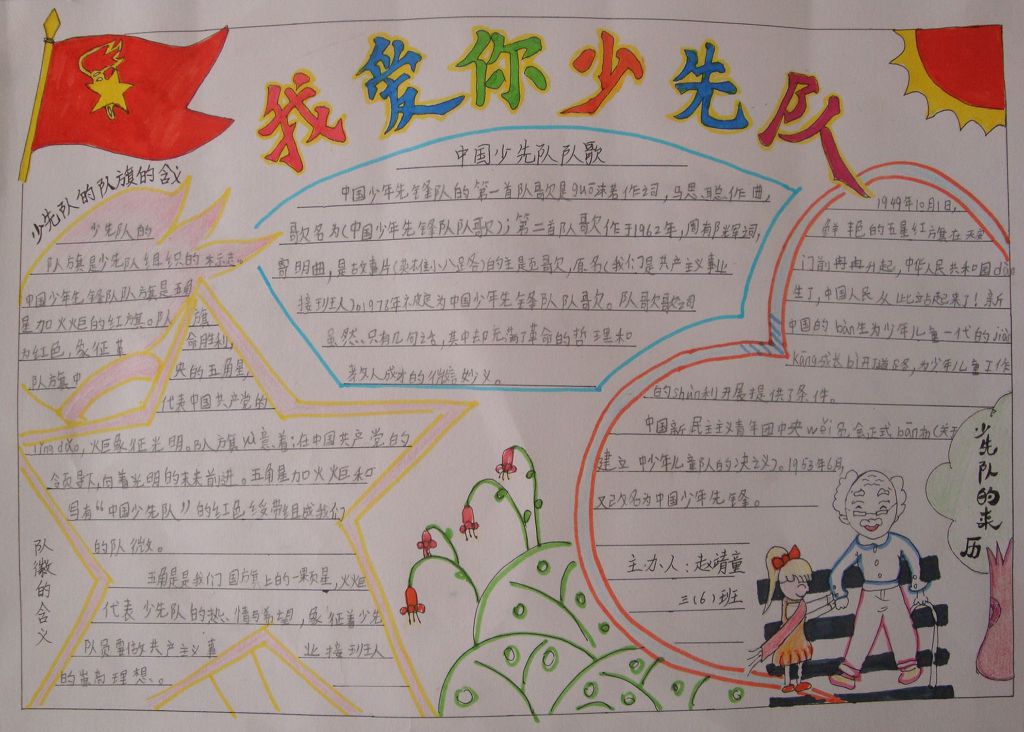 我爱你少先队
少先队的队旗的含义
少先队的
队旗是少先队组织的标志。
中国少年先锋队队旗是五角
星加火炬的红旗。队旗
为红色，象征革命胜利，
队旗中央的五角星，
代表中国共产党的
lǐng dǎo，火炬象征光明。队旗yì意着：在中国共产党的
领导下，向着光明的未来前进。五角星加火炬和
写有“中国少先队”的红色绶带组成我们
的队徽。
队徽的含义
五角星是我们国旗上的一颗星，火炬
代表少先队的热情与希望，象征着少先
队员要做共产主义事业接班人
的崇高理想。
中国少先队队歌
中国少年先锋队的第一首队歌是guō沫若作词，马思聪作曲，
歌名为《中国少年先锋队队歌》；第二首队歌作于1962年，周郁辉词，
寄明曲，是故事片《英雄小八路》的主题歌，原名《我们是共产主义
接班人》。1978年被定为中国少年先锋队队歌。队歌歌词
虽然只有几句话，其中却充满了革命的哲理和
教人成才的微妙义。
1949年10月1日，
鲜艳的五星红旗在天安
门前冉冉升起，中华人民共和国dàn
生了，中国人民从此站起来了！新
中国的dàn生为少年儿童一代的jiàn
kāng成长bì开道路，为少年儿童工作
的shùn利开展提供了条件。
中国新民主主义青年团中央wěi员会正式bān布《关于
建立中少年儿童队的决议》。1953年6月，
又改名为中国少年先锋。
主办人：赵靖童
三（6）班
少先队的来历